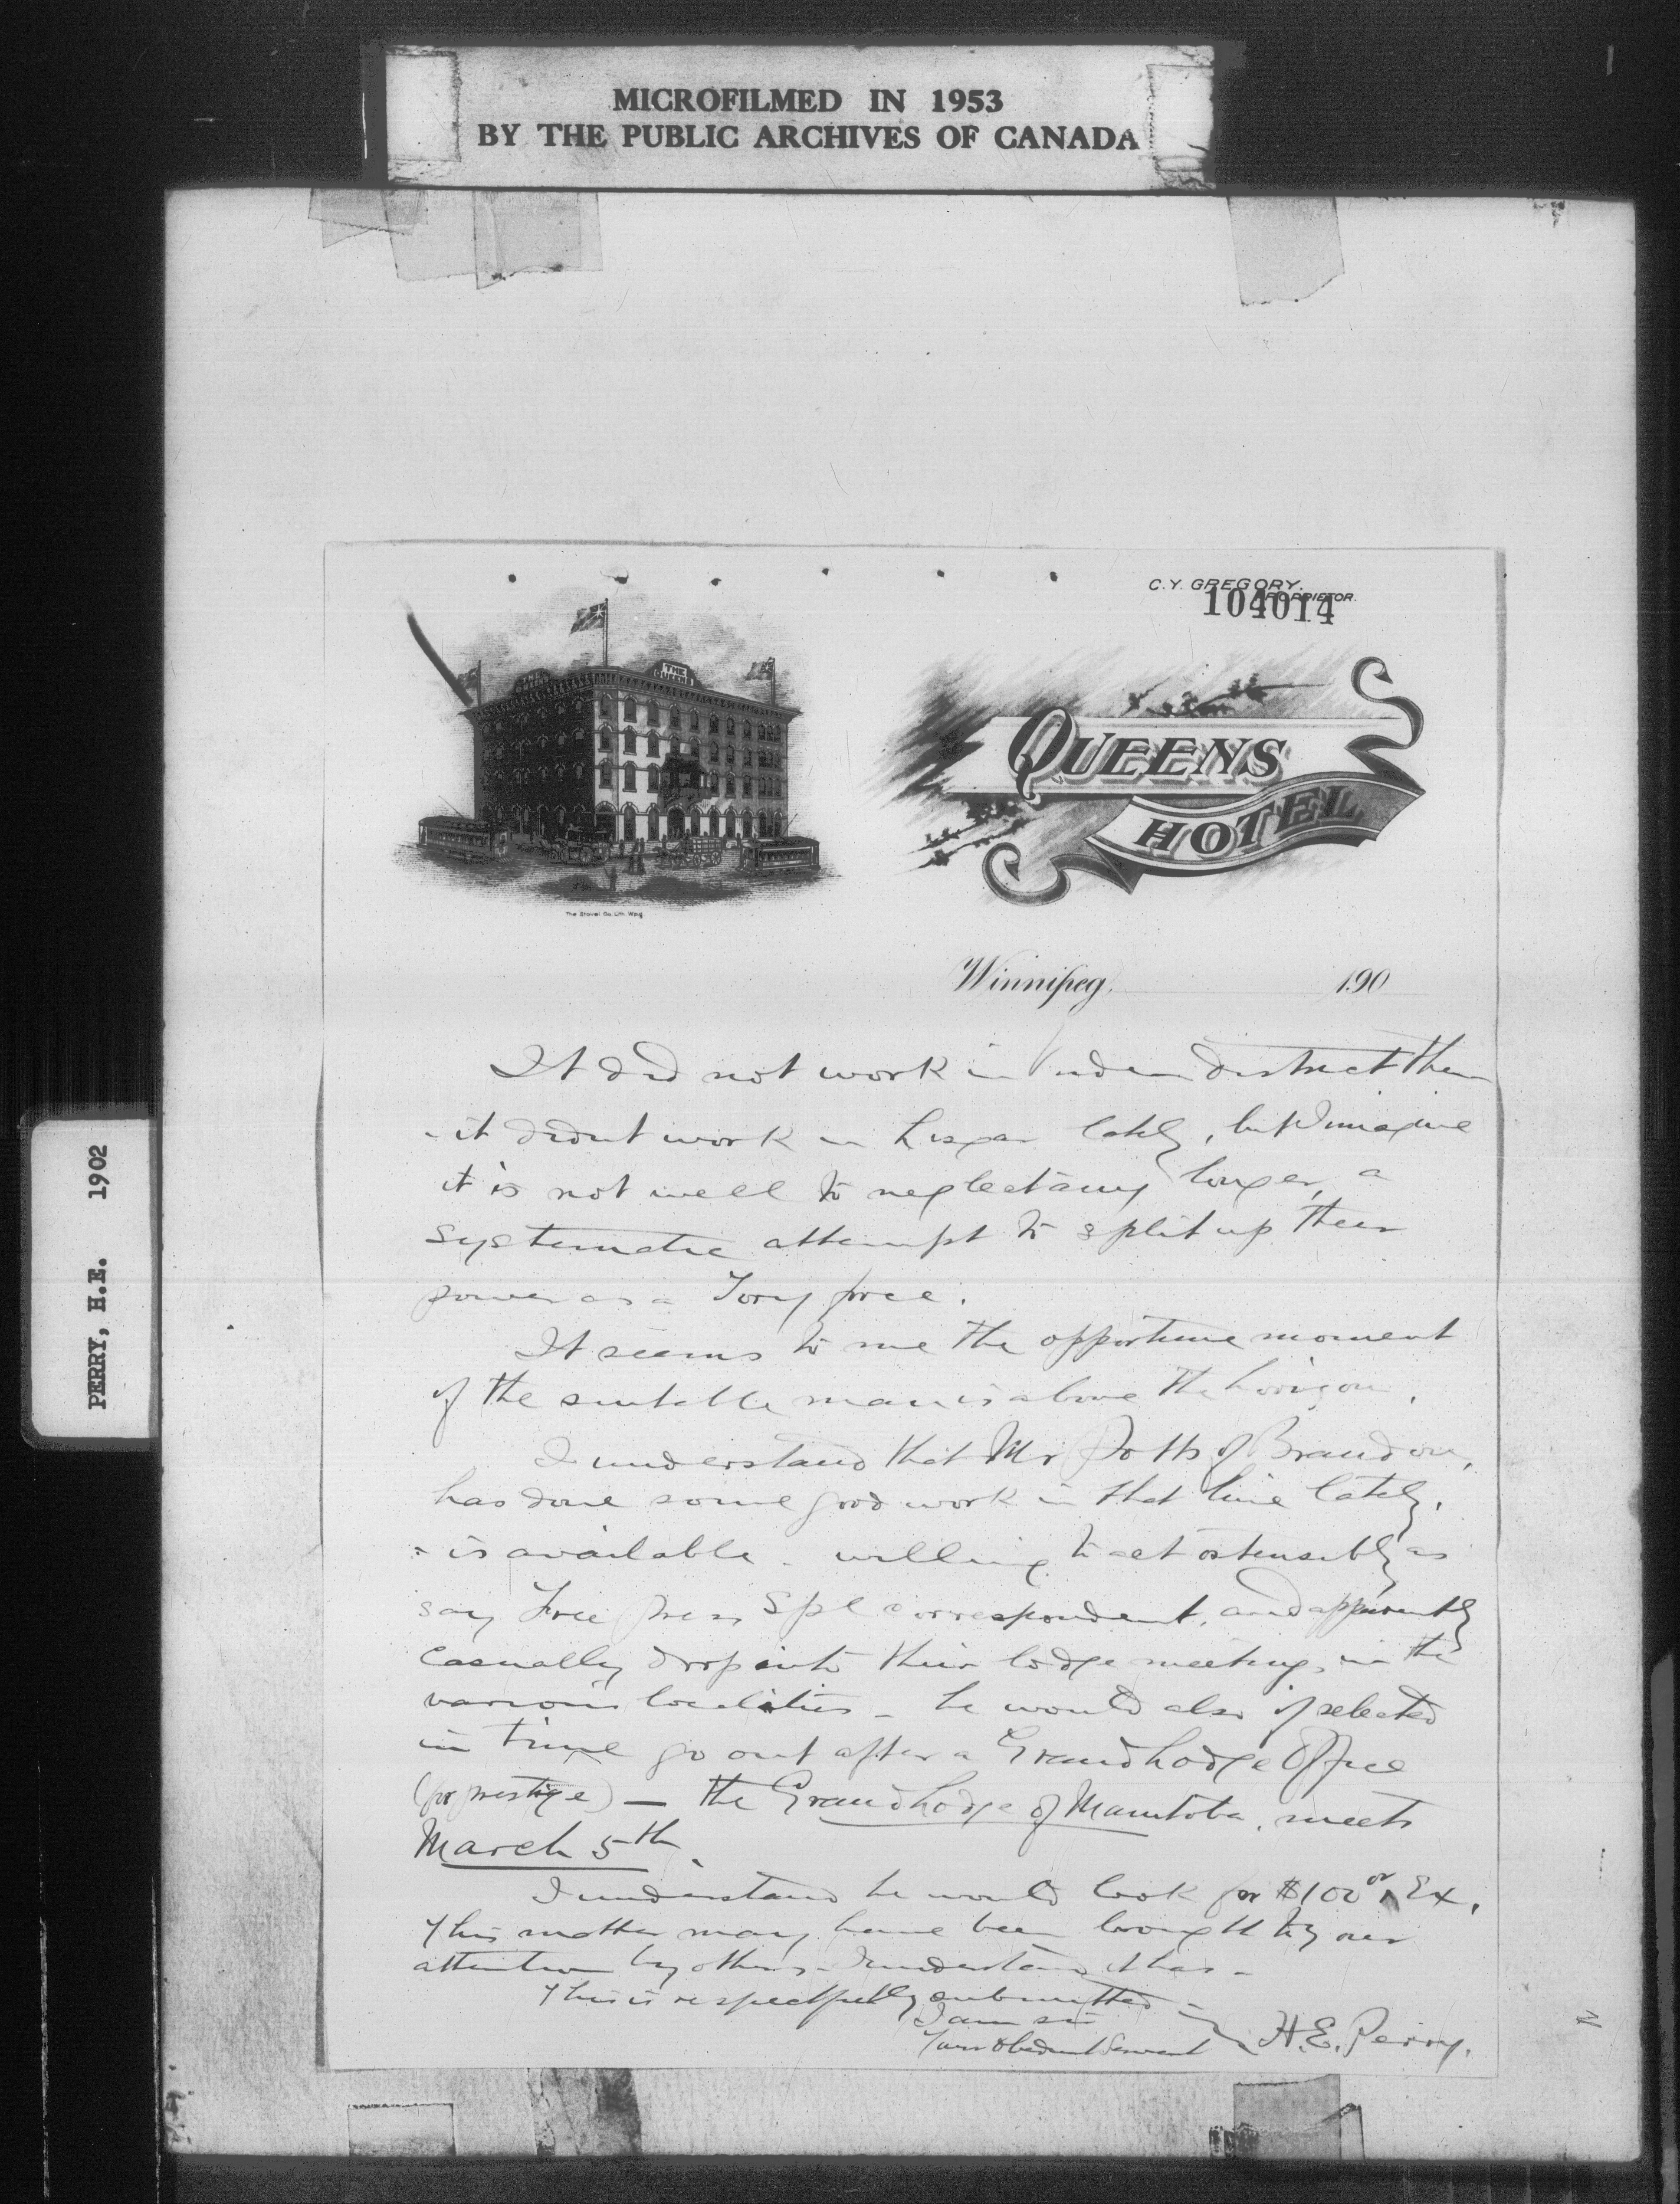 MICROFILMED IN 1953
BY THE PUBLIC ARCHIVES OF CANADA
PERRY, H.E. 1902
C. Y. GREGORY.
PROPRIETOR.
104014
THE QUEENS
THE QUEENS
QUEENS
HOTEL
The Stovel Co. Lith. Wpg.
Winnipeg, 190
It did not work in district then
- it didnt work in Lisgar lately, but I imagine
it is not well to neglect any longer, a
systematic attempt to split up their
power as a Tory force.
It seems to me the opportune moment
if the suitable man is above the horizon.
I understand that Mr Potts of Brandon,
has done some good work in that line lately,
is available - willing to act ostensibly as
say Free Press Spl correspondent, and apparently
casually drop into their lodge meetings in the
various localities - he would also if selected
in time go out after a Grand Lodge Office
(for prestige) — the Grand Lodge of Manitoba, meets
March 5th.
I understand he would look for $100 or Ex.
This matter may have been brought to your
attention by others - I understand it has -
This is respectfully submitted -
I am sir
Your Obedient Servant H.E. Perry.